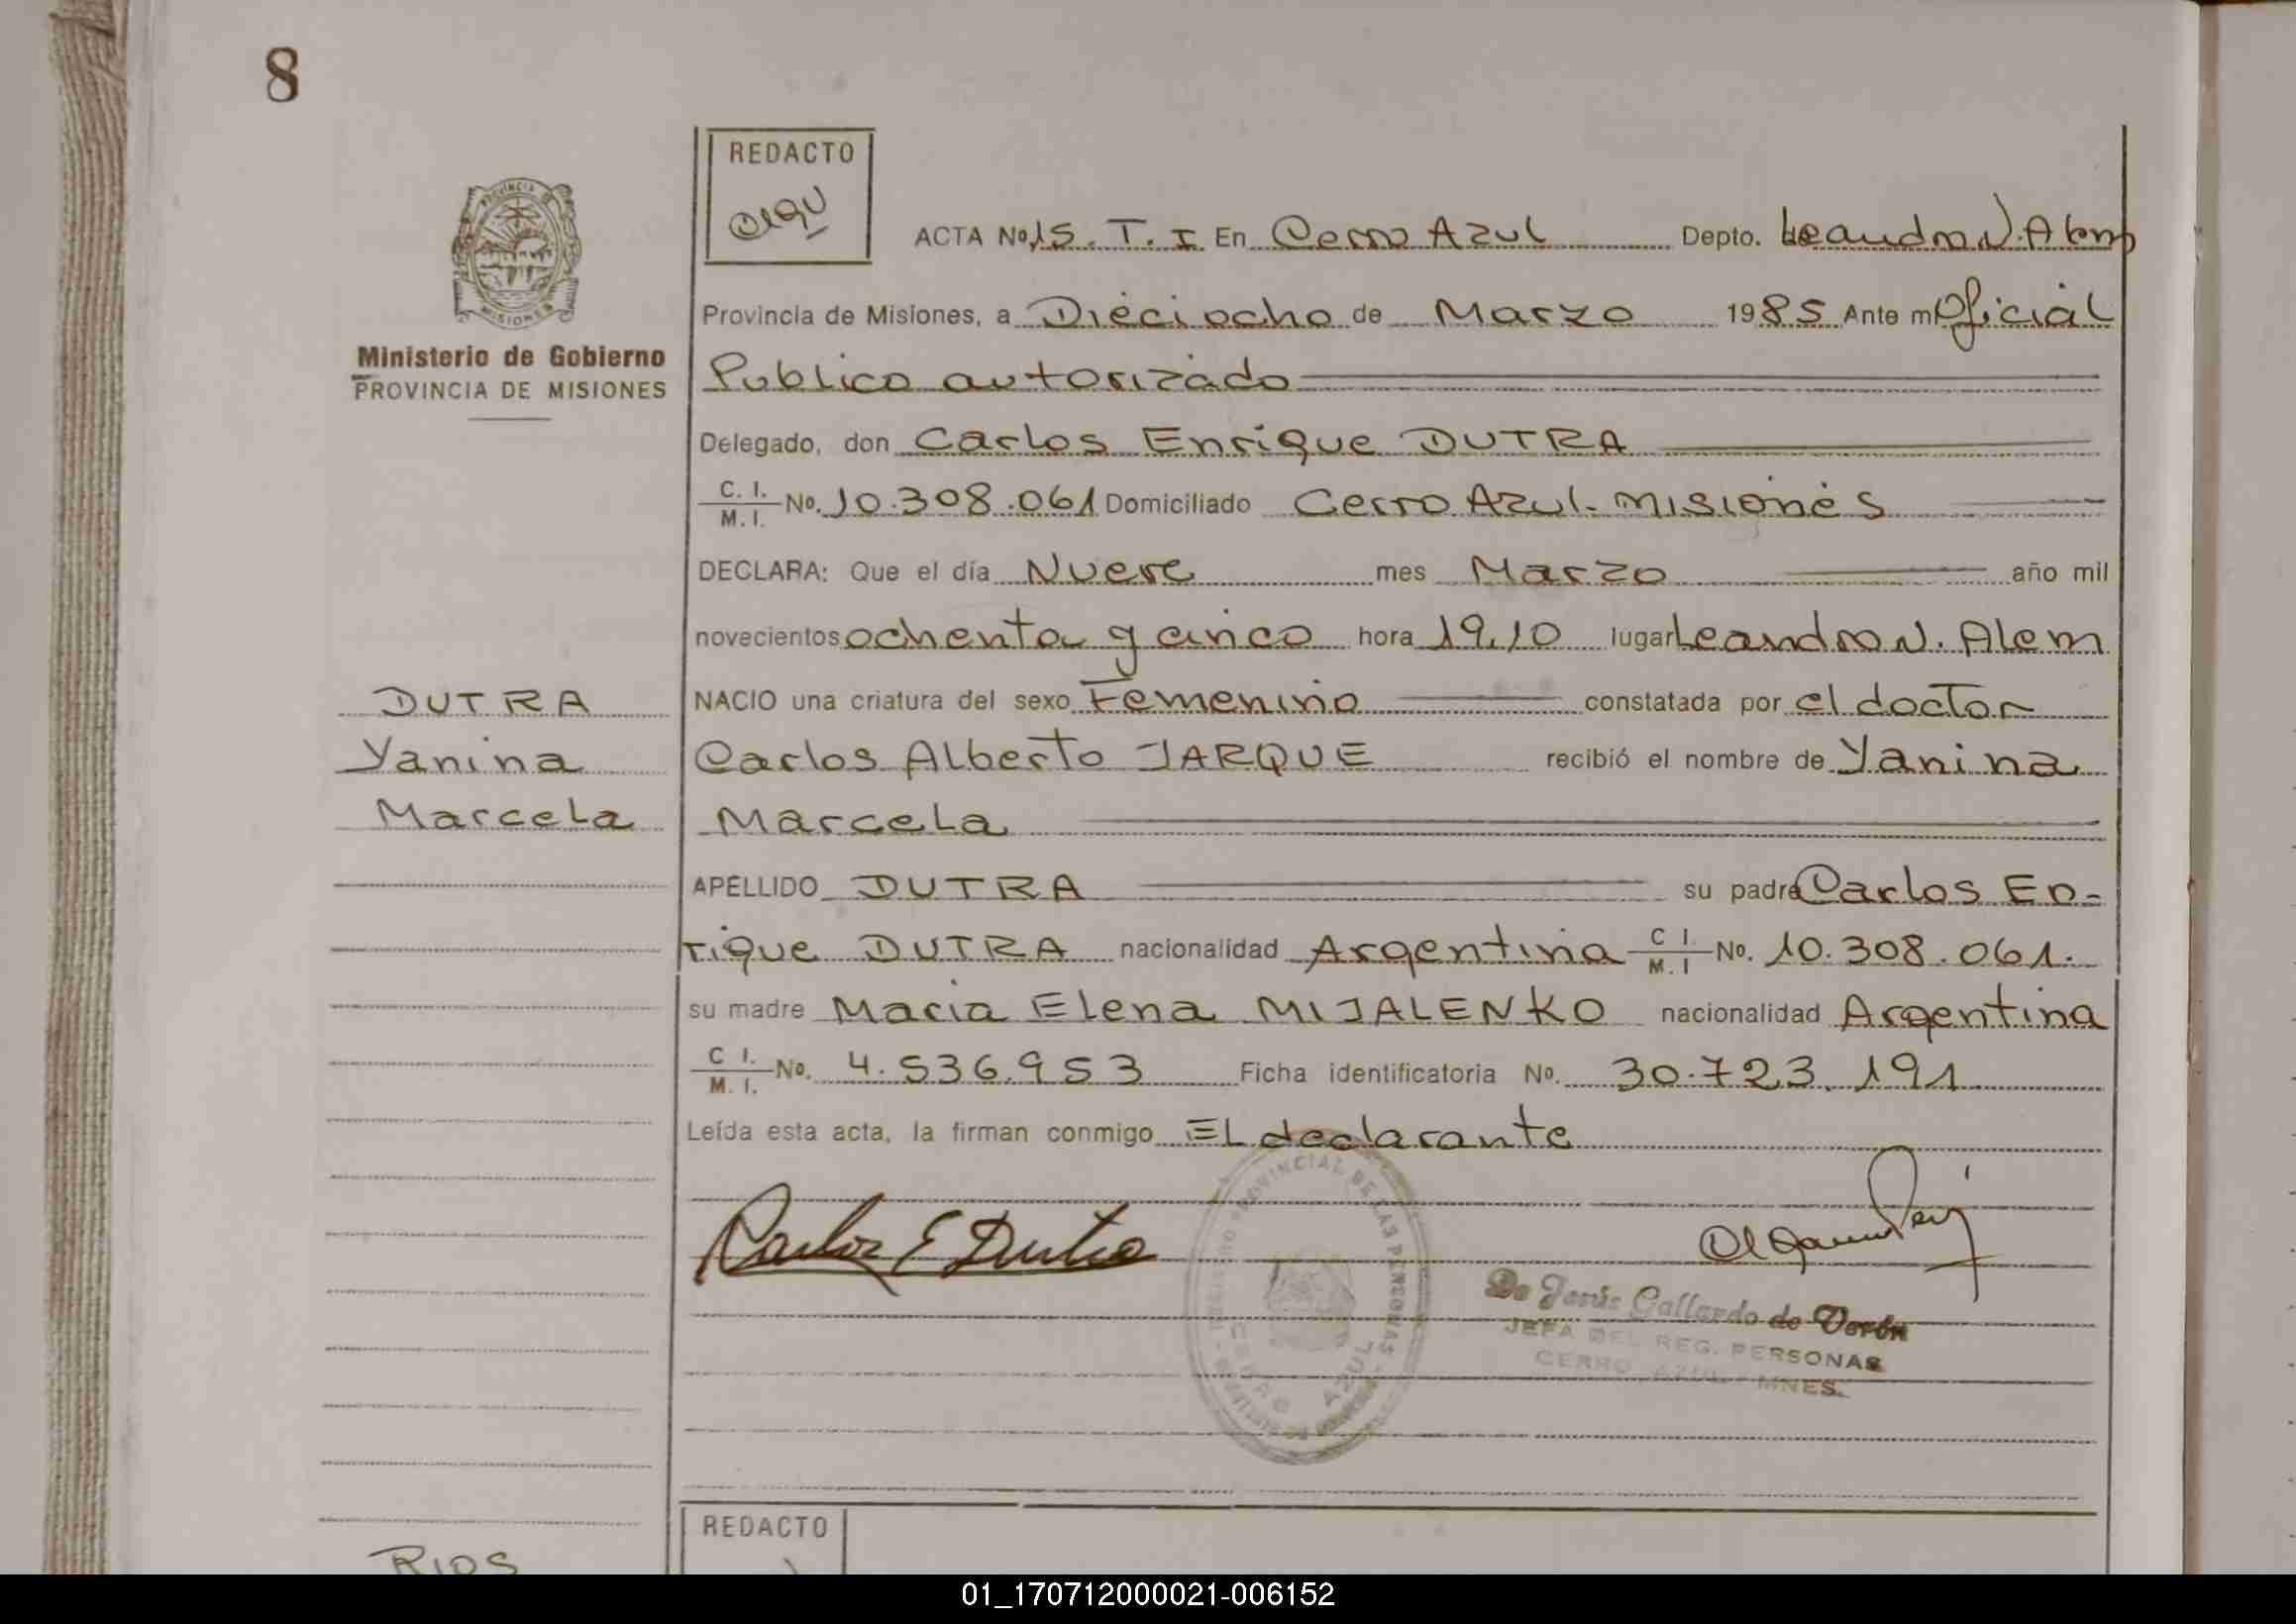 8
REDACTO
ACTA No. 15. T. I En Cerro Azul Depto. Leandro N. Alem
Provincia de Misiones, a Dieciocho de Marzo 1985 Ante mi Oficial
Ministerio de Gobierno
PROVINCIA DE MISIONES
Publico autorizado
Delegado, don Carlos Enrique DUTRA
C. I. / M. I. No. 10.308.061 Domiciliado Cerro Azul - Misiones
DECLARA: Que el día Nueve mes Marzo año mil
novecientos ochenta y cinco hora 19,10 lugar Leandro N. Alem
DUTRA
Yanina
Marcela
NACIO una criatura del sexo Femenino constatada por el doctor
Carlos Alberto JARQUE recibió el nombre de Yanina
Marcela
APELLIDO DUTRA su padre Carlos En-
rique DUTRA nacionalidad Argentina C I. / M. I No. 10.308.061.
su madre Maria Elena MIJALENKO nacionalidad Argentina
C I. / M. I. No. 4.536.953 Ficha identificatoria No. 30.723.191
Leída esta acta, la firman conmigo EL declarante
Carlos E Dutra
REGISTRO PROVINCIAL DE LAS PERSONAS
CERRO AZUL
De Jesús Gallardo de Verón
JEFA DEL REG. PERSONAS
CERRO AZUL - MNES.
REDACTO
RIOS
01_170712000021-006152